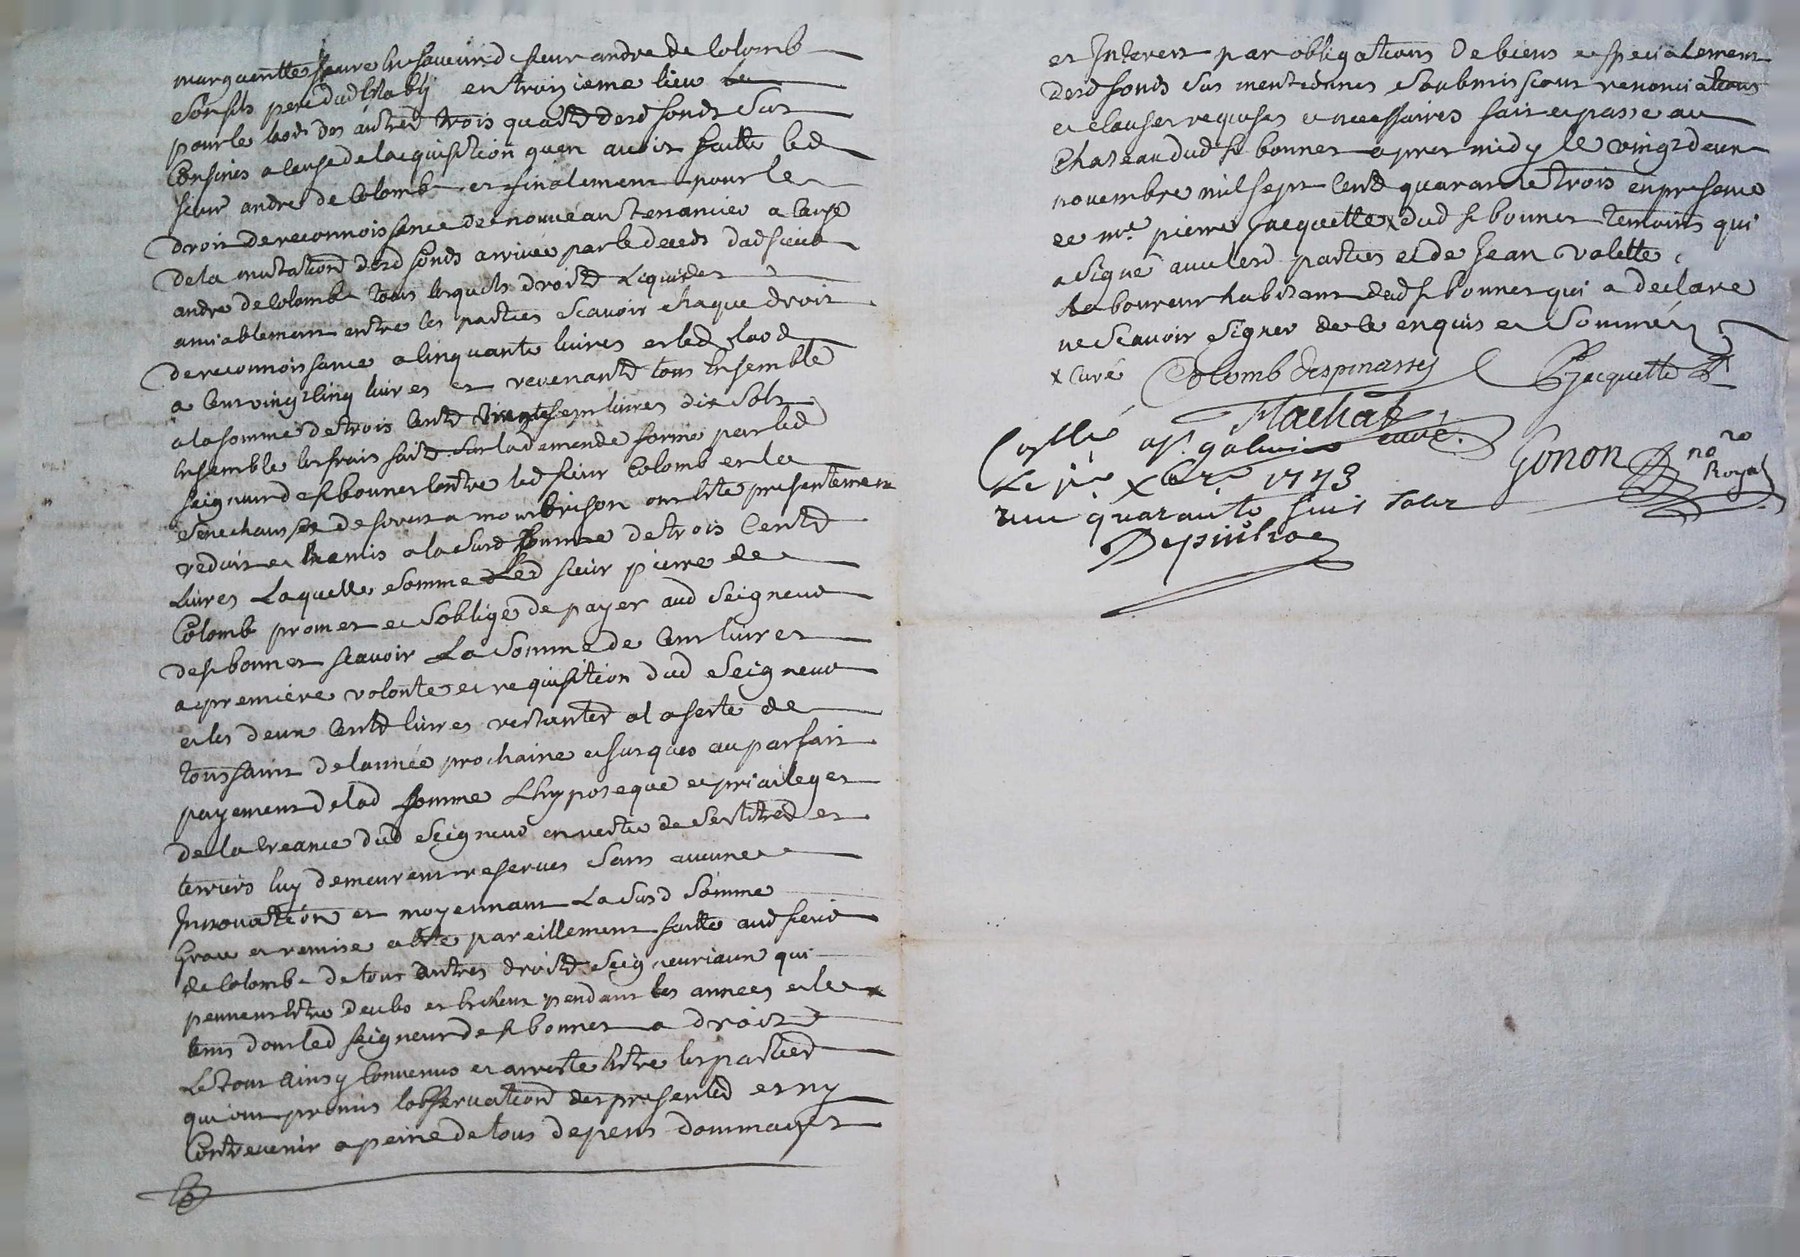 margueritte faure en faveur d sieur andre de Colomb
son fils pere dud estably en troisieme lieu le
pour le laods des autres trois quartd desd fonds sus
Confinés a cause de lacquisition quen avoit faitte led
sieur andre de Colomb et finalement pour le
droit de reconnoissance de nouveau tenancier a cause
de la mutation desd fonds arrivée par le deceds dud sieur
andre de Colomb tous lesquels droitd Liquides
amiablement entre les parties scavoir chaque droit
de reconnoissance a Cinquante livres et led laod
a Cent vingt Cinq livres et revenantd tous Ensemble
a la somme de trois Centd sept livres dix Sols
Ensemble les frais faitd sur la demande formé par led
seigneur de st bonnet Contre led sieur Colomb en la
senechaussée de forest a montbrison ont été presentement
reduit et Remis a la susd somme de trois Centd
Livres Laquelle somme Led sieur pierre de
Colomb promet et soblige de payer aud Seigneur
de st bonnet scavoir La somme de Cent livres
a premiere volonté et requisition dud Seigneur
et les deux Centd livres restantes a la feste de
toussaint de lannée prochaine et jusques au parfait
payement de lad somme Lhypoteque et privileges
de la Creance dud Seigneur en vertu de ses titred et
terriers luy demeurent reservés sans aucune
Innovation et moyennant La susd somme
Grace et remise a été pareillement faitte aud sieur
de Colomb de tous autres droitd Seigneuriaux qui
peuvent être deubs et Echeus pendant les années et le
tems dont led seigneur de st bonnet a droit
Le tout Ainsy Convenus et arresté Entre les partied
qui ont promis lobservation des presented et ny
Contrevenir a peine de tous depens dommages
et Interest par obligations de biens et specialement
desd fonds sus mentionnés soubmissions renonciations
et clauses requises et necessaires fait et passé au
Chateau dud st bonnet apres midy le vingt deux
novembre mil sept Centd quarante trois en presence
de mre pierre Jacquette x dud st bonnet temoins qui
a Signé avec lesd parties et de Jean Valette
Laboureur habitant dud st bonnet qui a declaré
ne Scavoir Signer de ce enquis et Sommé
x Curé Colomb despinasses PJacquette
Flachat
Collé
Le 1er Xbre 1743
quarante huit solz
Gonon no Royal